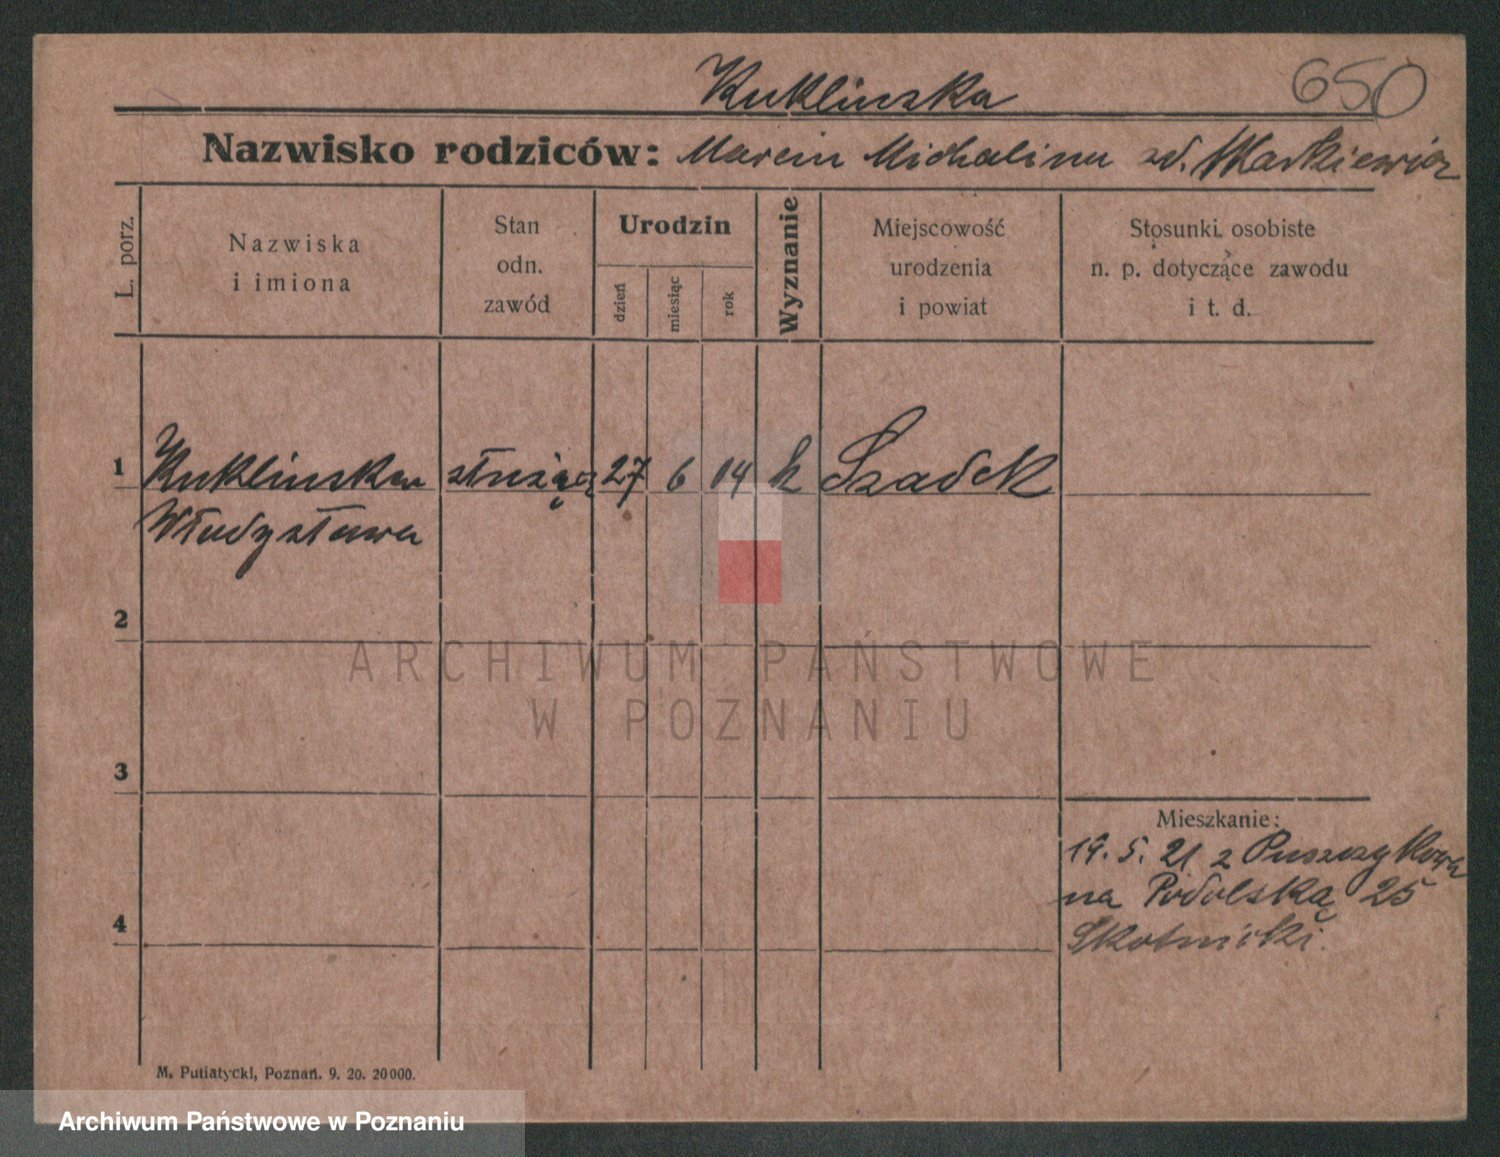 Kuklinska 650
Nazwisko rodziców: Marcin Michalina zd. Markiewicz
L. porz.
Nazwiska
i imiona
Stan
odn.
zawód
Urodzin
dzień
miesiąc
rok
Wyznanie
Miejscowość
urodzenia
i powiat
Stosunki osobiste
n. p. dotyczące zawodu
i t. d.
1 Kuklinska służąca 27 6 04 k Szadek
Władysława
2
ARCHIWUM PAŃSTWOWE
W POZNANIU
3
Mieszkanie:
5. 21 z Puszczykowa
na Podolską 25
4
Skotnicki.
M. Putiatycki, Poznań. 9. 20. 20000.
Archiwum Państwowe w Poznaniu